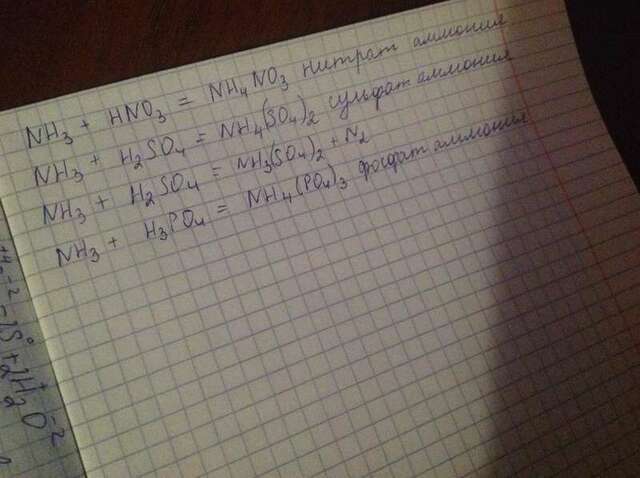 NH₃ + HNO₃ = NH₄NO₃ нитрат аммония
NH₃ + H₂SO₄ = NH₄(SO₄)₂ сульфат аммония
NH₃ + H₂SO₄ = NH₃(SO₄)₂ + N₂
NH₃ + H₃PO₄ = NH₄(PO₄)₃ фосфат аммония